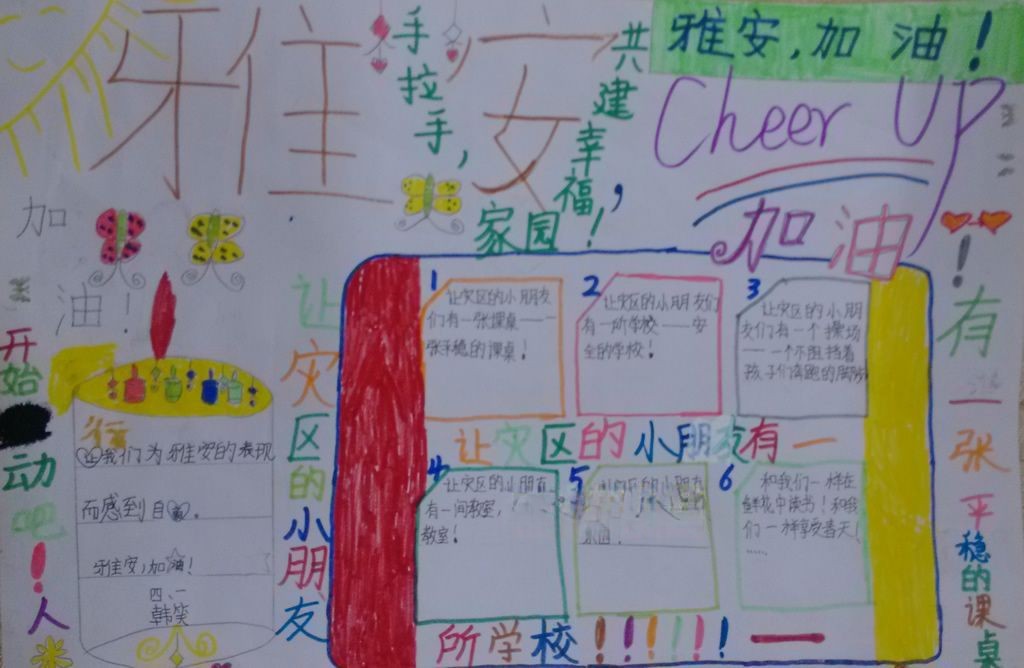 雅安
手拉手,
共建幸福,
家园!
雅安,加油!
Cheer Up
加油!
加
油!
开始
动吧!
人
行
我们为雅安的表现
而感到自
雅安,加油!
四、一
韩笑
让灾区的小朋友
有一张平稳的课桌
1
让灾区的小朋友
们有一张课桌——一
张平稳的课桌!
2
让灾区的小朋友们
有一所学校——安
全的学校!
3
让灾区的小朋
友们有一个操场
——一个不阻挡着
孩子们奔跑的脚步
让灾区的小朋友有一
4
让灾区的小朋友
有一间教室,
教室!
5
的小朋友
6
和我们一样在
鲜花中读书!和我
们一样享受春天!
……
所学校!!!!!!—